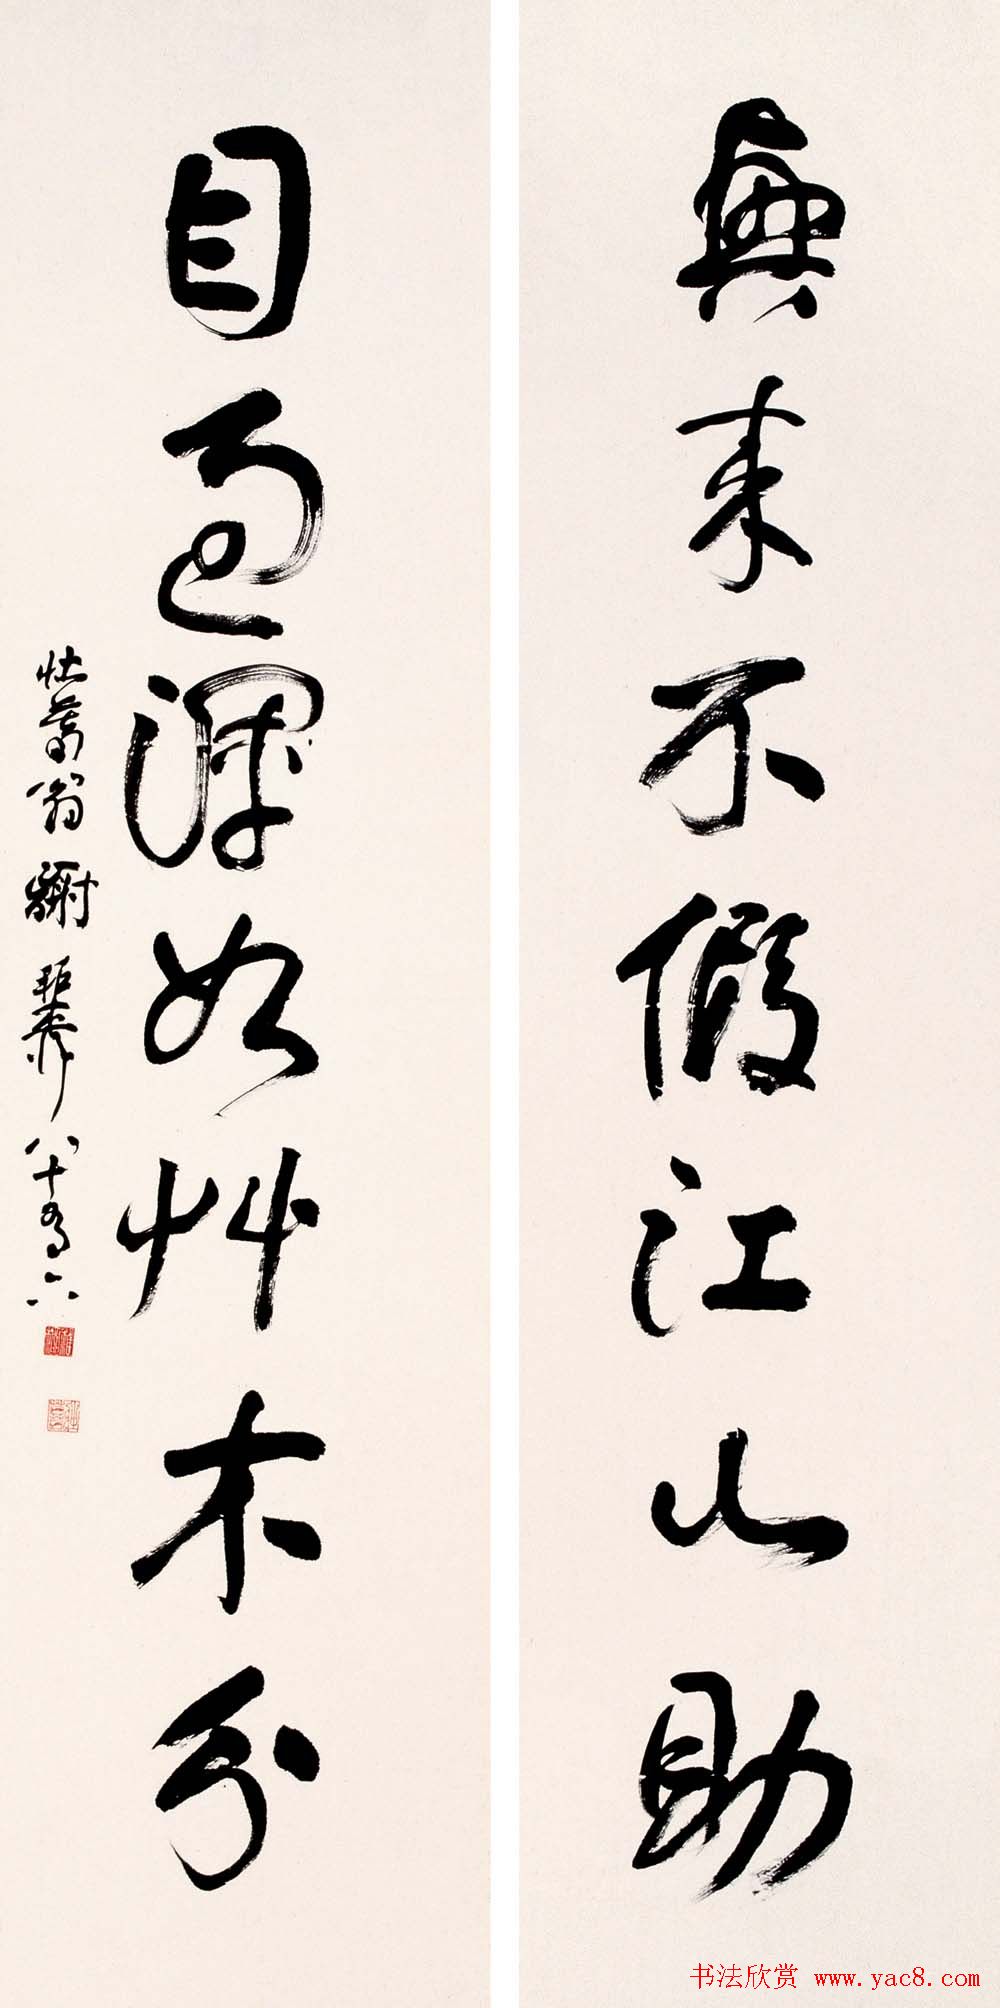 興來不假江山助
目過渾如艸木分
壯暮翁謝稚柳八十有六
书法欣赏 www.yac8.com